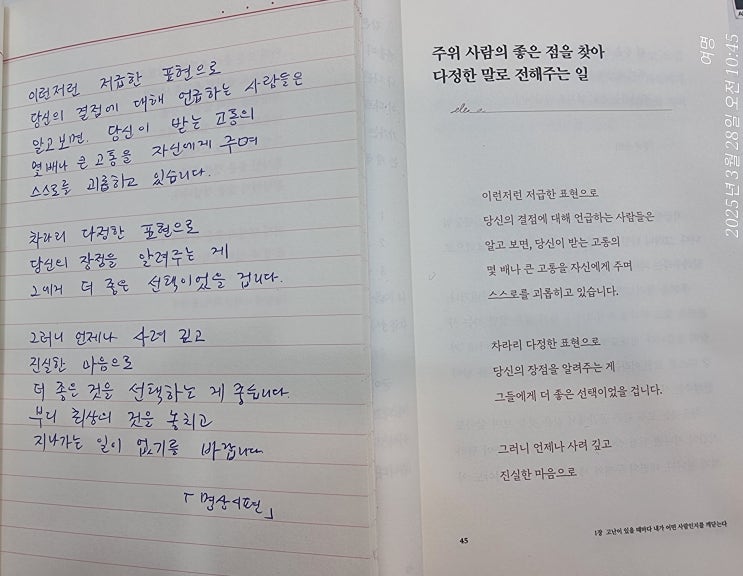 이런저런 저급한 표현으로
당신의 결점에 대해 언급하는 사람들은
알고보면, 당신이 받는 고통의
몇배나 큰 고통을 자신에게 주며
스스로를 괴롭하고 있습니다.
차라리 다정한 표현으로
당신의 장점을 알려주는 게
그에게 더 좋은 선택이었을 겁니다.
그러니 언제나 사려 깊고
진실한 마음으로
더 좋은 것을 선택하는 게 좋습니다.
부디 최상의 것을 놓치고
지나가는 일이 없기를 바랍니다
주위 사람의 좋은 점을 찾아
다정한 말로 전해주는 일
이런저런 저급한 표현으로
당신의 결점에 대해 언급하는 사람들은
알고 보면, 당신이 받는 고통의
몇 배나 큰 고통을 자신에게 주며
스스로를 괴롭히고 있습니다.
차라리 다정한 표현으로
당신의 장점을 알려주는 게
그들에게 더 좋은 선택이었을 겁니다.
그러니 언제나 사려 깊고
진실한 마음으로
45
1장 고난이 있을 때마다 내가 어떤 사람인지를 깨닫는다
여명
2025년 3월 28일 오전 10:45